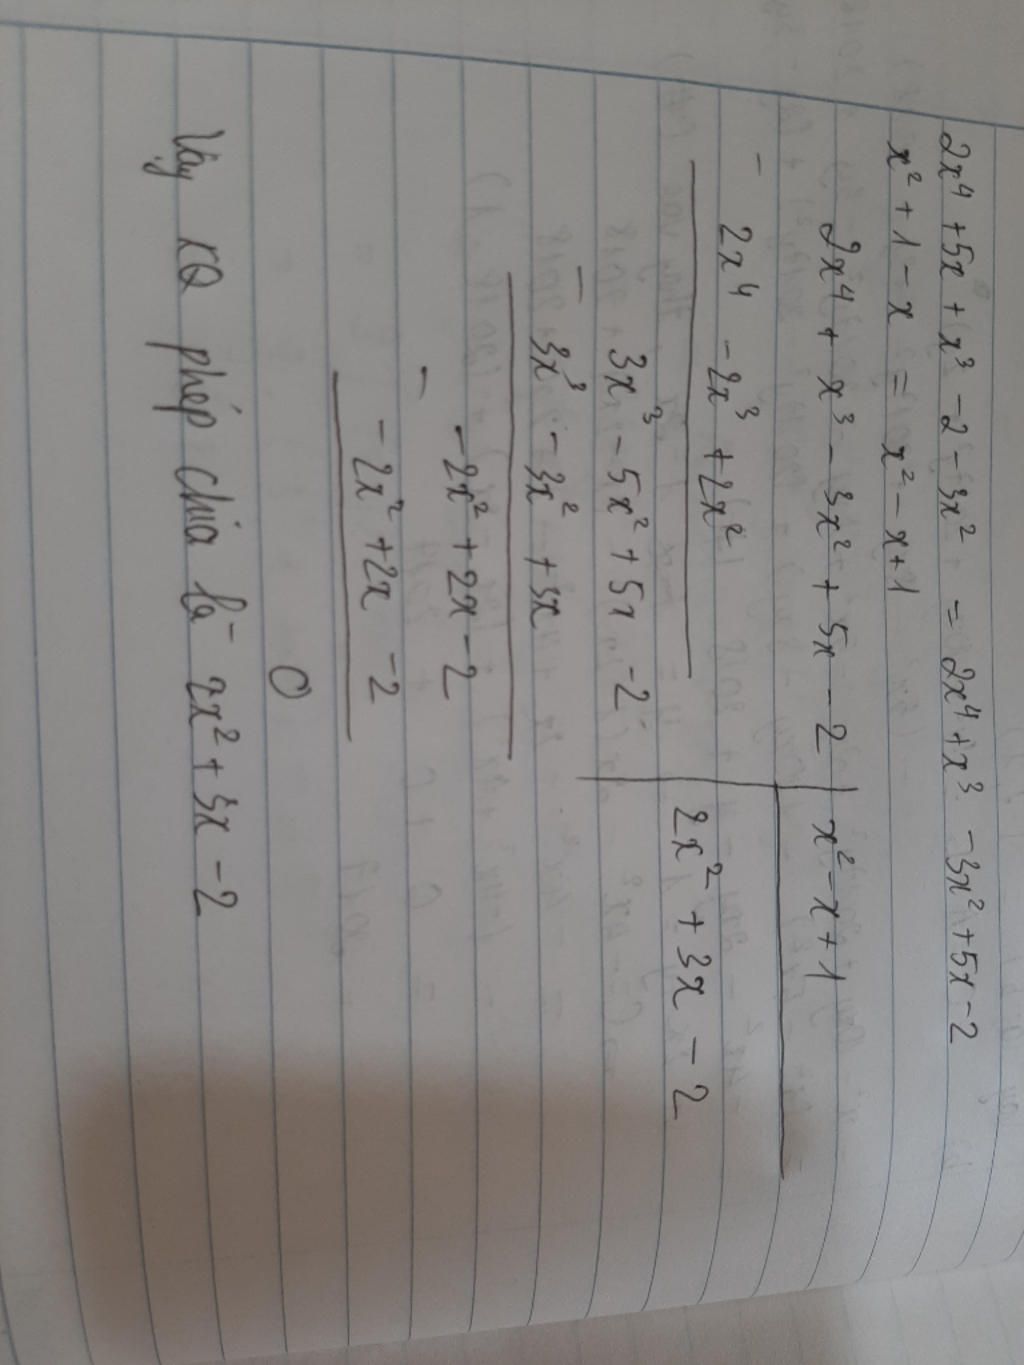 2x⁴ + 5x + x³ - 2 - 3x² = 2x⁴ + x³ - 3x² + 5x - 2
x² + 1 - x = x² - x + 1
2x⁴ + x³ - 3x² + 5x - 2 | x² - x + 1
- 2x⁴ - 2x³ + 2x² | 2x² + 3x - 2
3x³ - 5x² + 5x - 2
- 3x³ - 3x² + 3x
-2x² + 2x - 2
- -2x² + 2x - 2
0
Vậy KQ phép chia là 2x² + 3x - 2